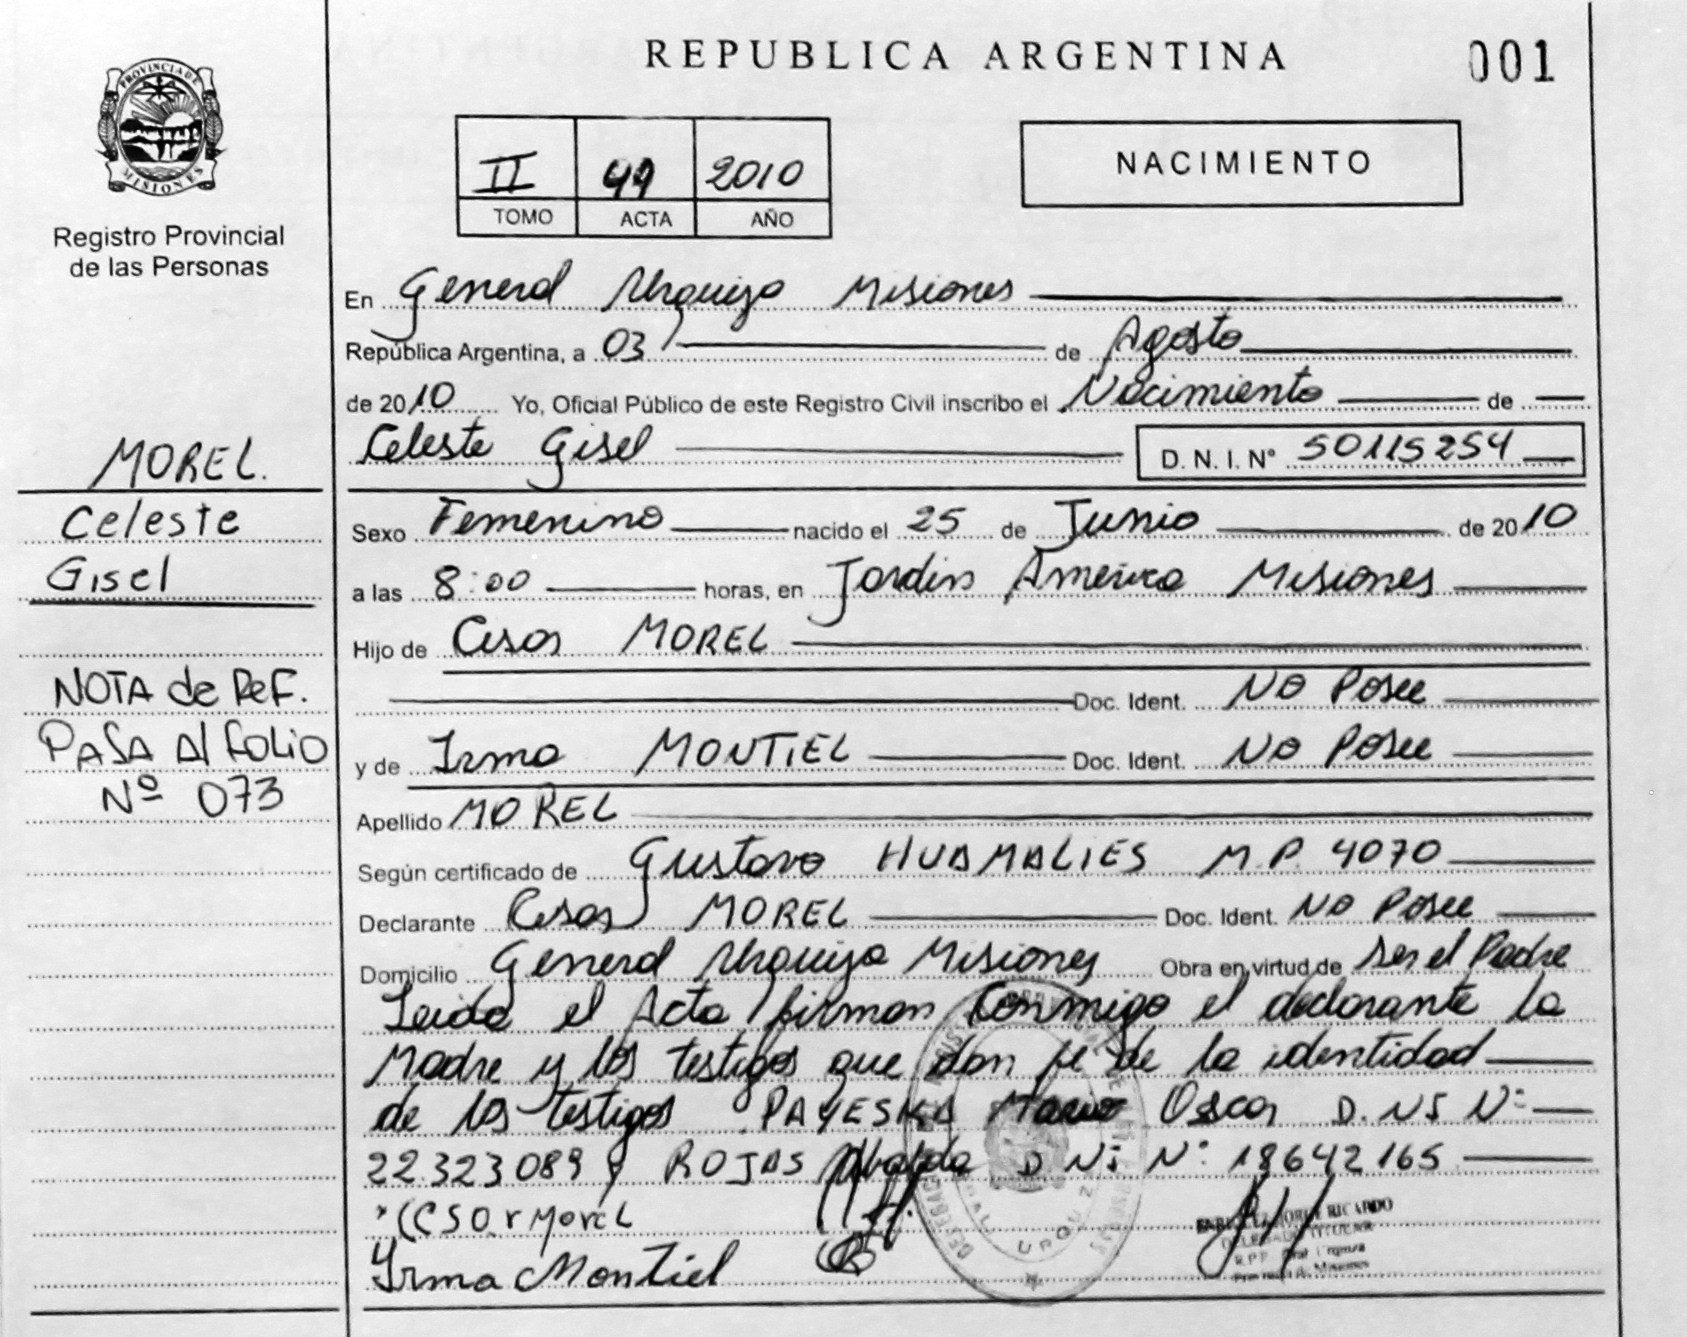 REPUBLICA ARGENTINA
001
PROVINCIA DE
MISIONES
Registro Provincial
de las Personas
II 2010
TOMO ACTA AÑO
NACIMIENTO
En General Urquiza Misiones
República Argentina, a 03 de Agosto
de 2010 Yo, Oficial Público de este Registro Civil inscribo el Nacimiento de
Celeste Gisel D. N. I. Nº 50115254
MOREL.
Celeste
Gisel
Sexo Femenino nacido el 25 de Junio de 2010
a las 8:00 horas, en Jardin America Misiones
Hijo de Cesar MOREL
Doc. Ident. No Posee
y de Irma MONTIEL Doc. Ident. No Posee
NOTA de REF.
PASA Al FOLIO
Nº 073
Apellido MOREL
Según certificado de Gustavo HUAMALIES M.P. 4070
Declarante Cesar MOREL Doc. Ident. No Posee
Domicilio General Urquiza Misiones Obra en virtud de Ser el Padre
Leida el Acta firman conmigo el declarante la
Madre y los testigos que dan fe de la identidad
de los testigos PAYESKA Mario Oscar D.NI Nº
22.323089 y ROJAS D NI Nº 18642165
Morel
Irma Montiel
JORGE RICARDO
DELEGADO TITULAR
R.P.P. Gral. Urquiza
Provincia de Misiones